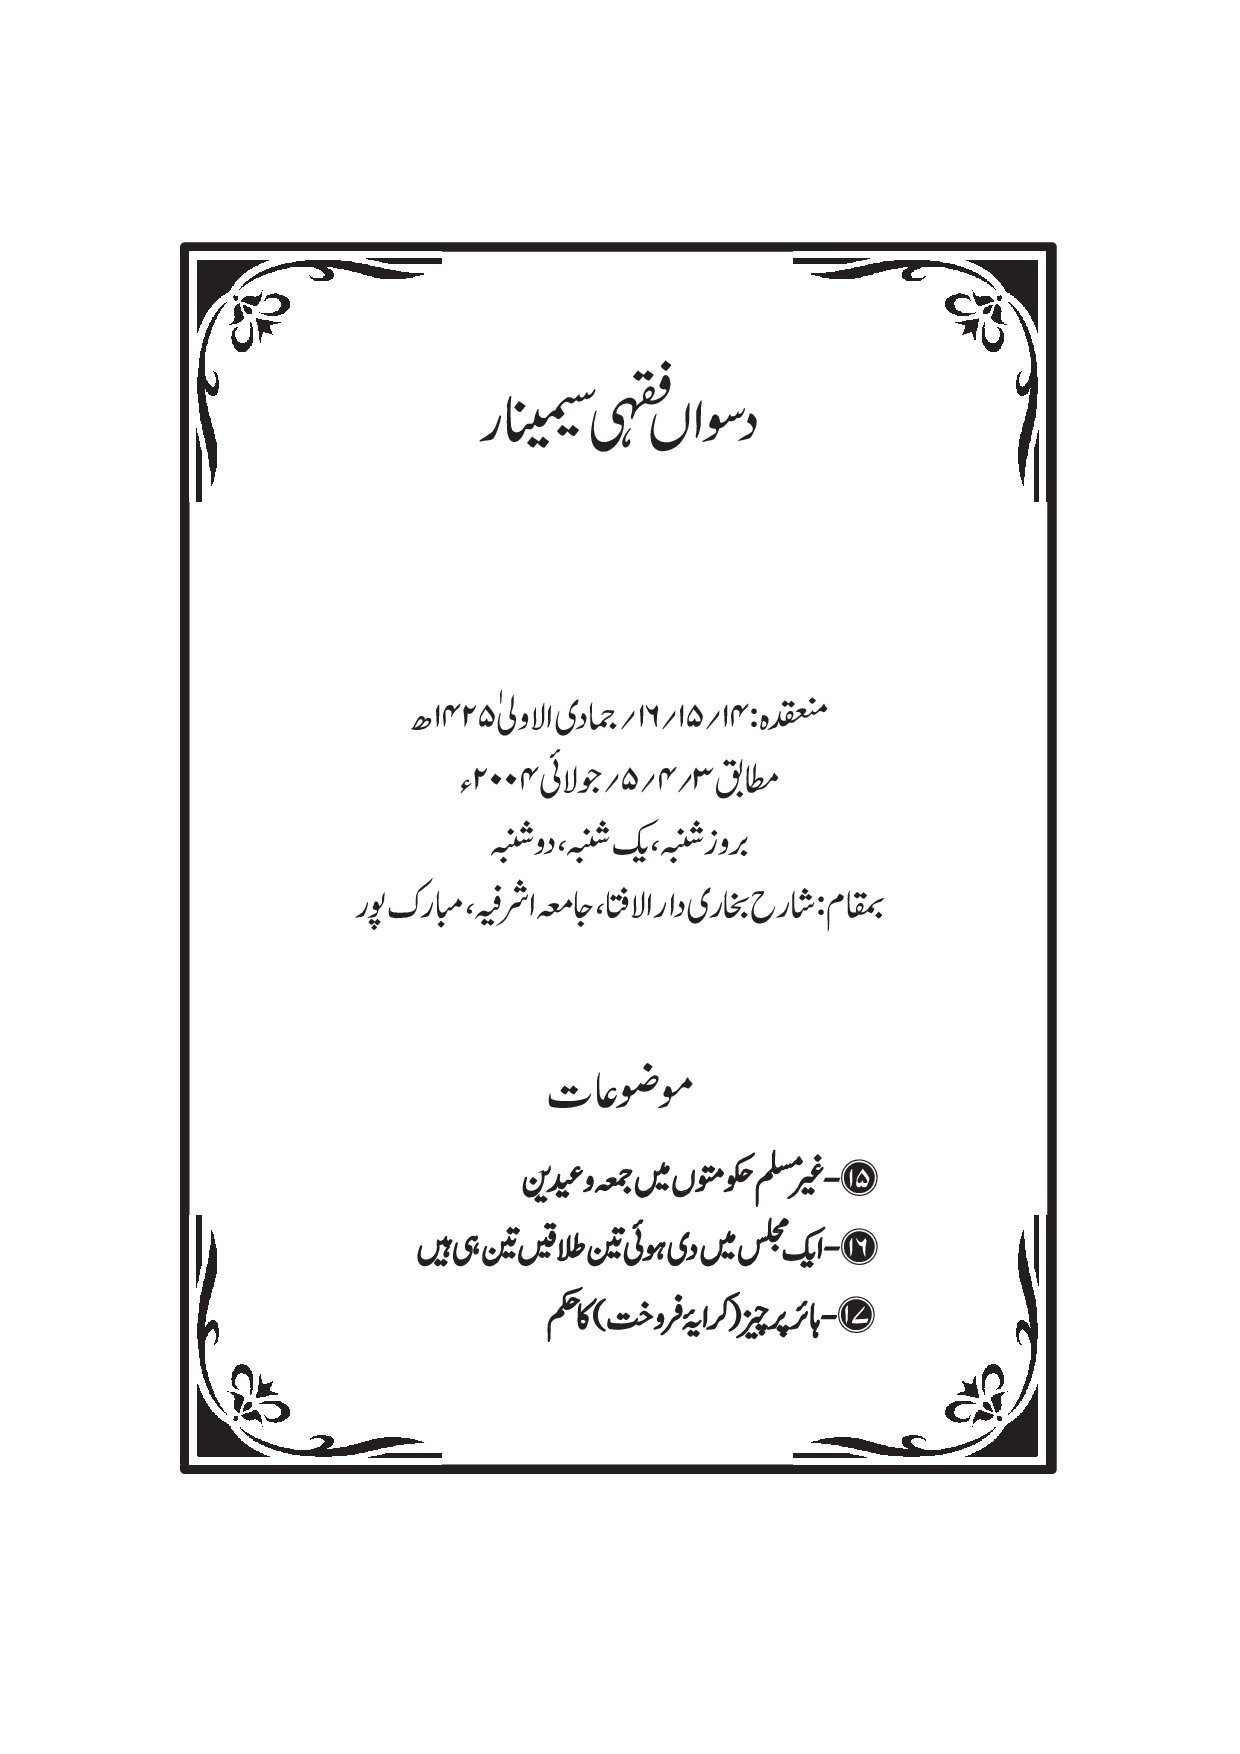 دسواں فقہی سیمینار
منعقدہ: ۱۴؍ ۱۵؍ ۱۶؍ جمادی الاولیٰ ۱۴۲۵ھ
مطابق ۳؍ ۴؍ ۵؍ جولائی ۲۰۰۴ء
بروز شنبہ، یک شنبہ، دو شنبہ
بمقام: شارح بخاری دار الافتا، جامعہ اشرفیہ، مبارک پور
موضوعات
۱۵-غیر مسلم حکومتوں میں جمعہ و عیدین
۱۶-ایک مجلس میں دی ہوئی تین طلاقیں تین ہی ہیں
۱۷-ہائر پرچیز (کرایۂ فروخت) کا حکم